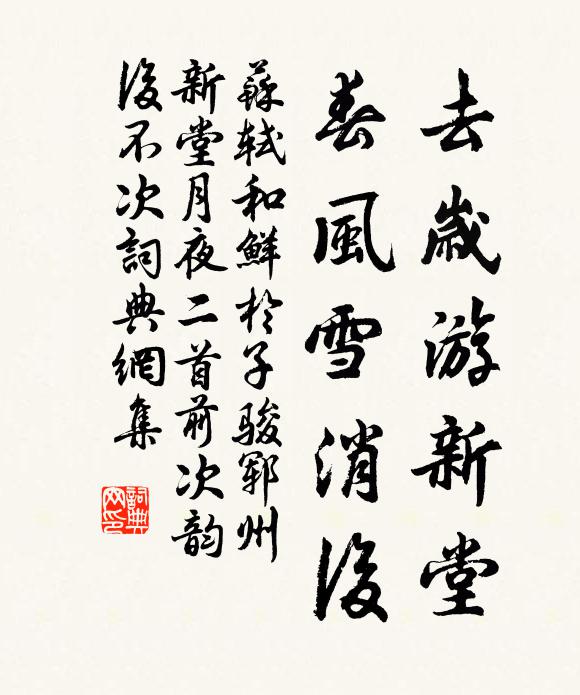 去歲游新堂
春風雪消後
蘇軾和鮮於子駿鄆州
新堂月夜二首前次韵
後不次詞典網集
詞典
网印